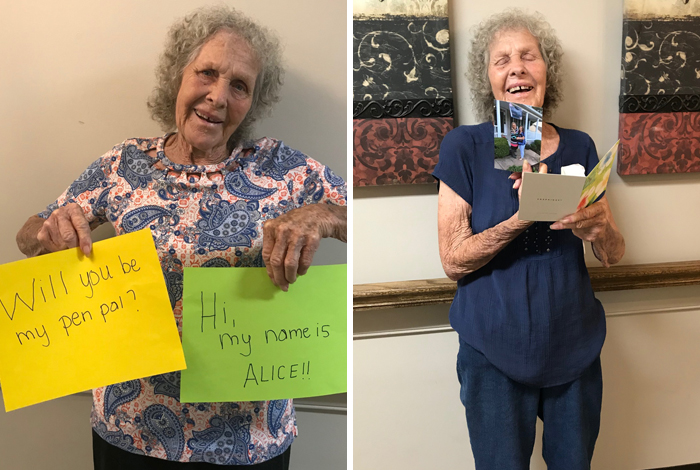 Will you be
my pen pal?
Hi,
my name is
ALICE!!